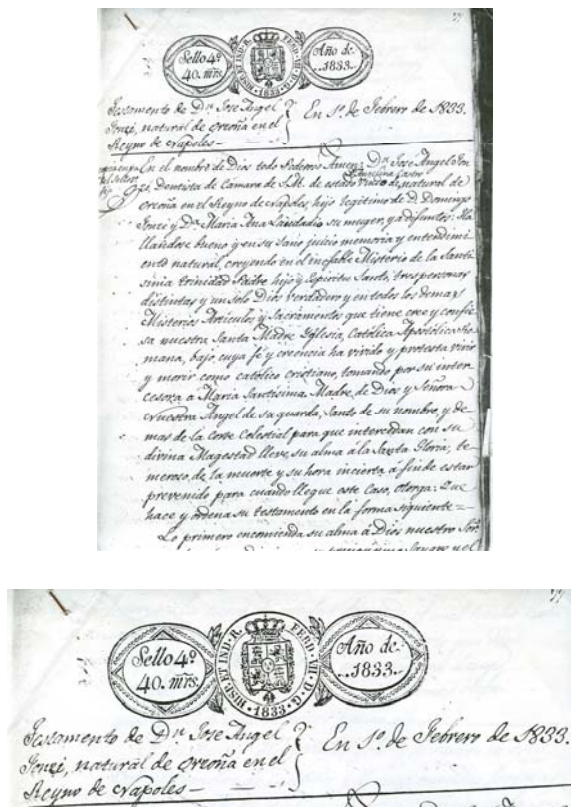 Sello 4º
40. mrs.
HISP. ET IND. R. FERD. VII. D. G.
Año de
1833.
Testamento de Dn. Jose Angel
natural de en el
Reyno de Napoles
En 1º de Febrero de 1833.
En el nombre de Dios todo Poderoso Amen: Dn. Jose Angel
Dentista de Camara de S.M. de estado Viudo de natural de
en el Reyno de Napoles, hijo legitimo de D. Domingo
y Da. Maria Ana su muger, ya difuntos: Ha
llandose bueno y en su sano juicio memoria y entendimi
ento natural, creyendo en el inefable Misterio de la Santi
sima trinidad Padre hijo y Espiritu Santo, tres personas
distintas y un solo Dios verdadero y en todos los demas
Misterios Articulos y Sacramentos que tiene cree y confie
sa nuestra Santa Madre Yglesia, Catolica Apostolica Ro
mana, bajo, cuya fé y creencia ha vivido y protesta vivir
y morir como catolico cristiano, tomando por su inter
cesora a Maria Santisima Madre de Dios y Señora
Nuestra Angel de su guarda, Santo de su nombre y de
mas de la Corte Celestial para que intercedan con su
divina Magestad lleve, su alma á la Santa Gloria, te
meroso, de la muerte y su hora incierta á fin de estar
prevenido para cuando llegue este Caso, otorga: Que
hace y ordena su testamento en la forma siguiente =
Lo primero encomienda su alma á Dios nuestro Sor.
Sello 4º
40. mrs.
HISP. ET IND. R. FERD. VII. D. G.
1833
Año de
1833.
Testamento de Dn. Jose Angel
natural de en el
Reyno de Napoles
En 1º de Febrero de 1833.